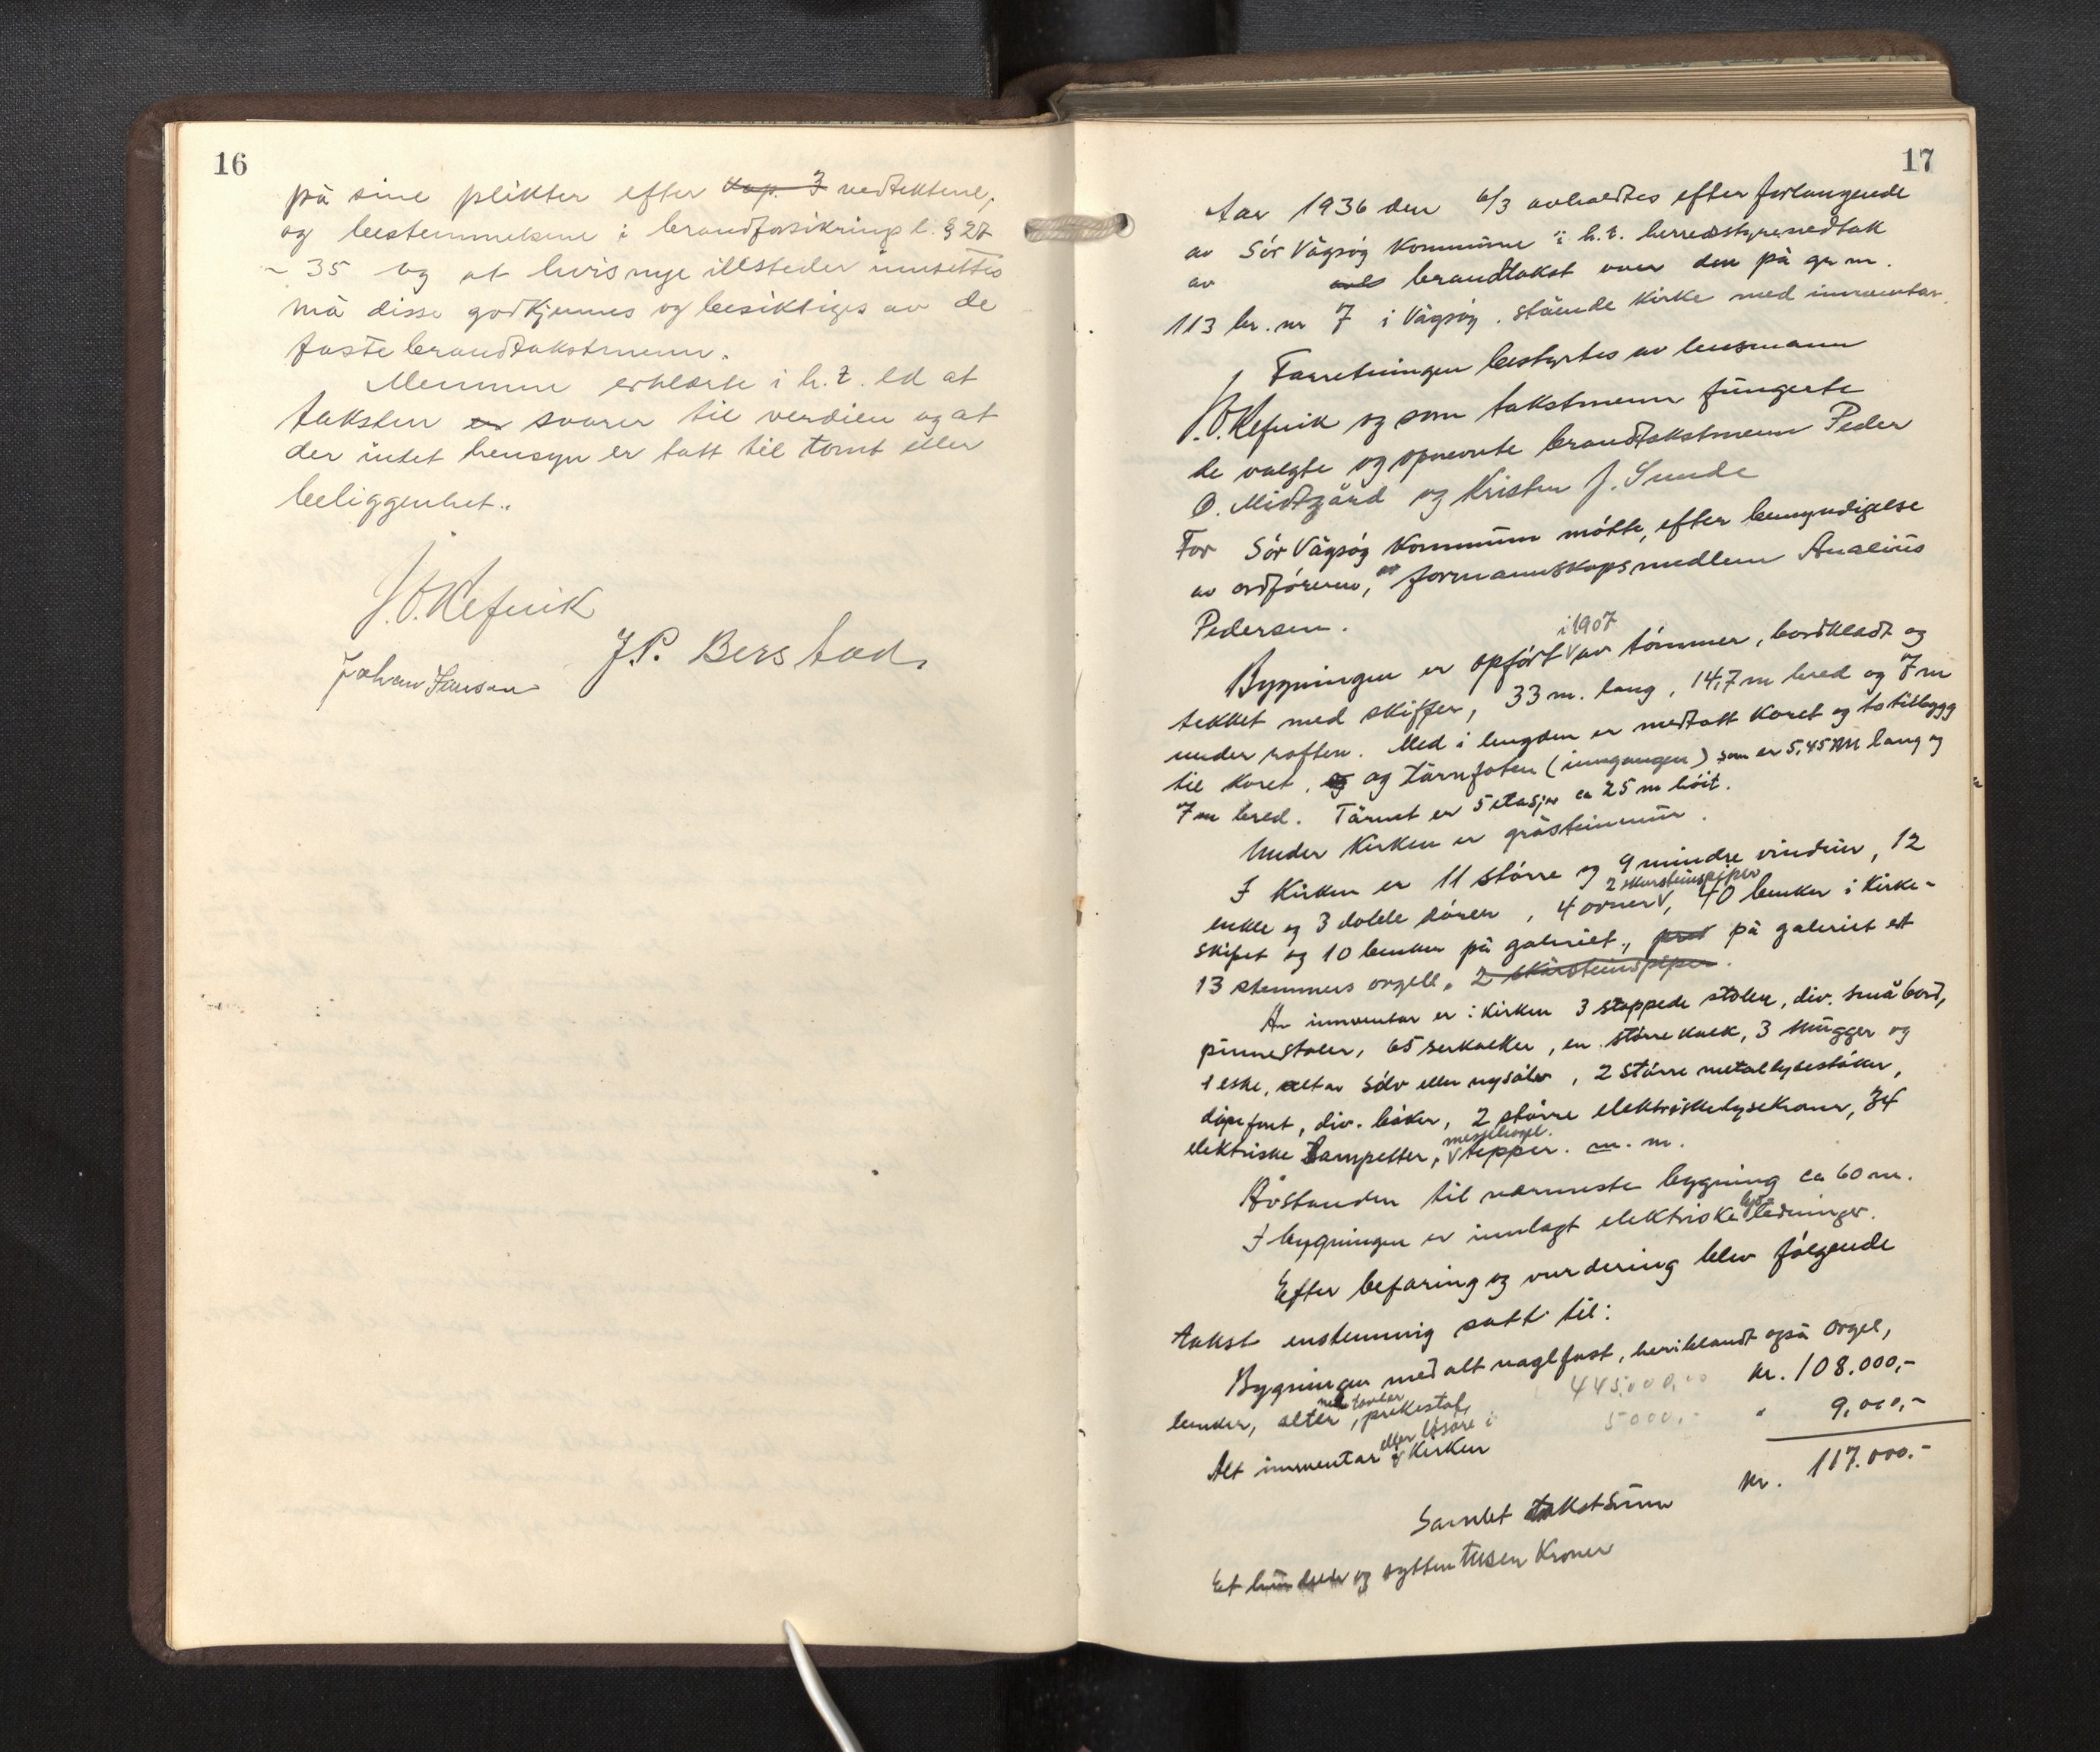 16
på sine plikter efter kap. 3 vedtektene,
og bestemmelsene i brandforsikringsl. § 27
- 35 og at hvis nye illsteder innsettes
må disse godkjennes og besiktiges av de
faste brandtakstmenn.
Mennene erklærte i h.t. ed at
taksten er svarer til verdien og at
der intet hensyn er tatt til tomt eller
beliggenhet.
J.O. Refvik
J.P. Berstad
Johan Jensen
17
Aar 1936 den 6/3 avholdtes efter forlangende
av Sör Vågsöy Kommune i h.t. herredsstyrevedtak
av brandtakst over den på gr. nr.
113 br. nr 7 i Vågsöy stående Kirke med inventar.
Forretningen bestyrtes av lensmann
J.O. Refvik og som takstmenn fungerte
de valgte og opnevnte brandtakstmenn Peder
O. Midtgård og Kristen J. Sunde
For Sör Vågsöy Kommune mötte, efter bemyndigelse
av ordföreren, formannskapsmedlem Anselius
Pedersen.
i 1907
Bygningen er opfört av tömmer, bordkledt og
tekket med skiffer, 33 m. lang, 14,7 m bred og 7 m
under roften. Med i lengden er medtatt Koret og to tilbygg
til Koret, og og tårnfoten (inngangen) som er 5,45 m lang og
7 m bred. Tårnet er 5 etasjer ca 25 m höit.
Under Kirken er gråsteinmur.
I Kirken er 11 större og 9 mindre vinduer, 12
2 skorsteinspiper
enkle og 3 doble dörer, 4 ovner, 40 benker i Kirke-
skipet og 10 benker på galeriet, på galeriet et
13 stemmers orgell. 2 skorsteinspiper.
Av inventar er i Kirken 3 stoppede stoler, div. små bord,
pinnestoler, 65 serkalker, en större kalk, 3 mugger og
1 eske, alt av sölv eller nysölv, 2 större metallysestaker,
döpefont, div. böker, 2 större elektriske lysekroner, 34
messehagel.
elektriske Lampetter, tepper. m. m.
Avstanden til nærmeste bygning ca 60 m.
lys-
I bygningen er innlagt elektriske ledninger.
Efter befaring og vurdering blev fölgende
takst enstemmig satt til:
Bygningen med alt naglfast, heriblandt også orgel,
med tavler
benker, alter, prekestol, 445.000,00 kr. 108.000,-
eller lösöre i
Alt inventar i Kirken 5000,- " 9,000,-
Samlet takstsum kr. 117.000.-
Et hundrede og sytten tusen Kroner